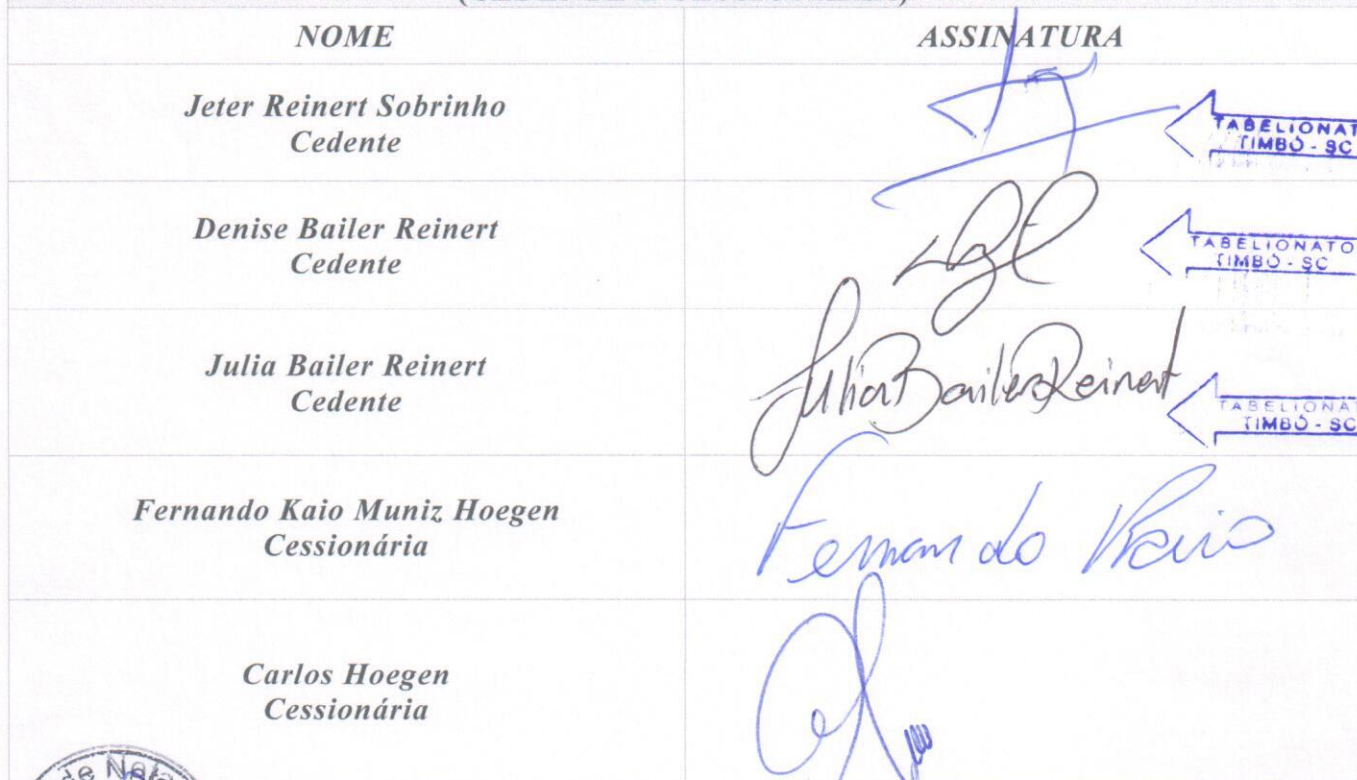 NOME ASSINATURA
Jeter Reinert Sobrinho
Cedente
TABELIONAT
TIMBÓ - SC
Denise Bailer Reinert
Cedente
TABELIONATO
TIMBÓ - SC
Julia Bailer Reinert
Cedente
Julia Bailer Reinert
TABELIONAT
TIMBÓ - SC
Fernando Kaio Muniz Hoegen
Cessionária
Fernando Kaio
Carlos Hoegen
Cessionária
de Nota